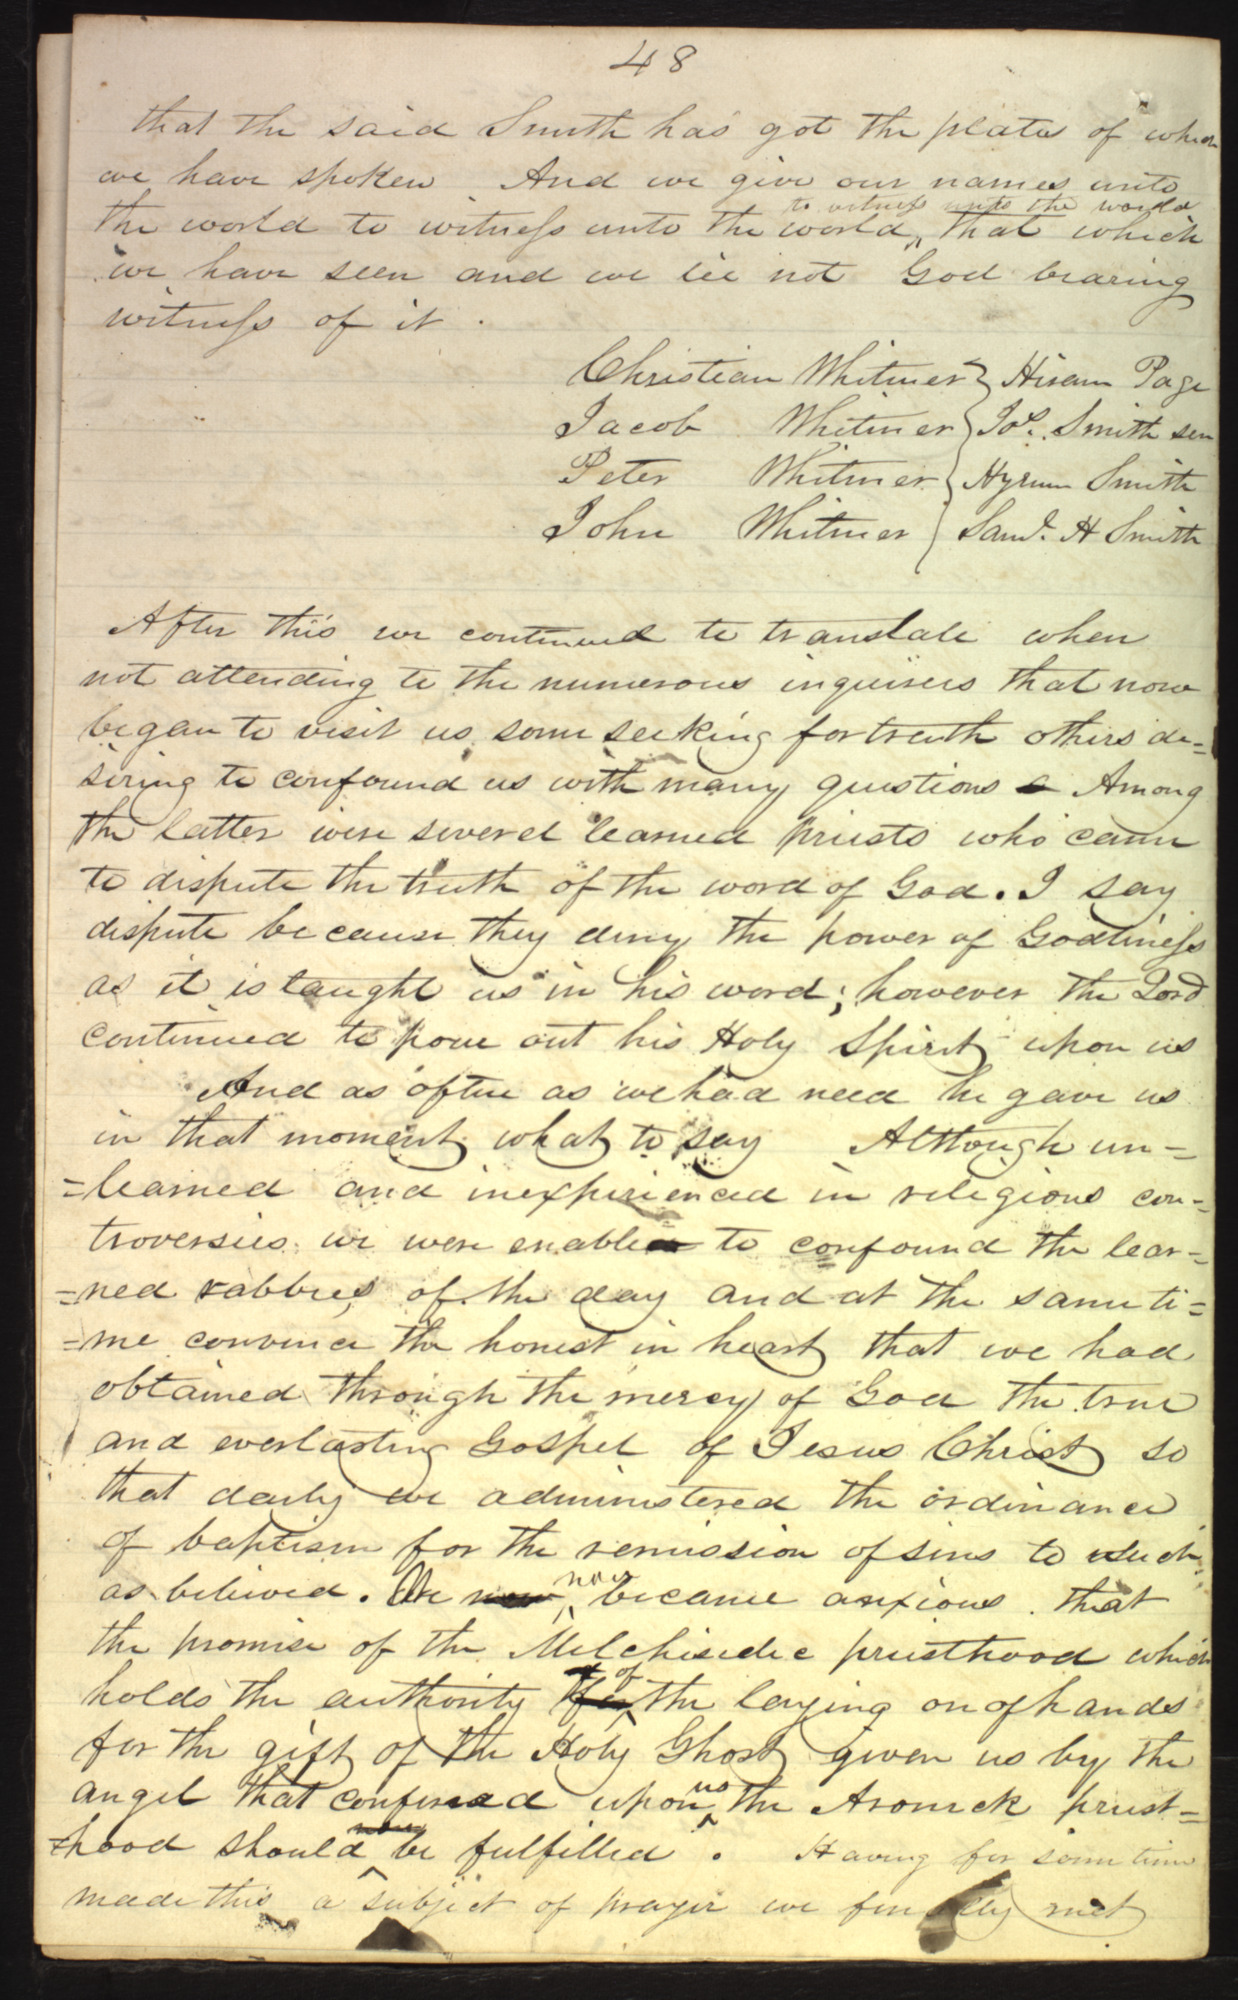 48
that the said Smith has got the plates of which
we have spoken And we give our names unto
to witness unto the world
the world to witness unto the world, that which
we have seen and we lie not God bearing
witness of it.
Christian Whitmer } Hiram Page
Jacob Whitmer } Jos. Smith sen
Peter Whitmer } Hyrum Smith
John Whitmer } Saml. H Smith
After this we continued to translate when
not attending to the numerous inquirers that now
began to visit us some seeking for truth others de=
siring to confound us with many questions Among
the latter were several learned priests who came
to dispute the truth of the word of God. I say
dispute because they deny the power of Godliness
as it is taught us in his word; however the Lord
continued to pour out his Holy Spirit upon us
And as often as we had need he gave us
in that moment what to say Although un=
=learned and inexperienced in religious con=
troversies we were enabled to confound the lear=
=ned rabbies of the day and at the same ti=
=me convince the honest in heart that we had
obtained through the mercy of God the true
and everlasting Gospel of Jesus Christ so
that daily we administered the ordinance
of baptism for the remission of sins to such
now
as believed. We now became anxious that
the promise of the Melchisedic priesthood which
of
holds the authority the laying on of hands
for the gift of the Holy Ghost given us by the
us
angel that confered upon the Aronick priest=
now
=hood should be fulfilled. Having for some time
made this a subject of prayer we finally met